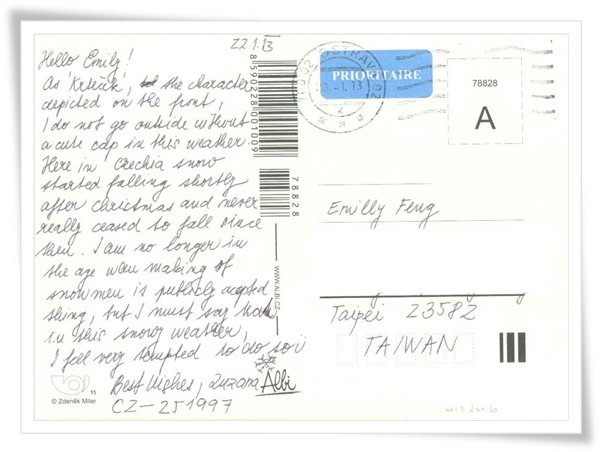 22.1.13
Hello Emily!
As 'Krteček', the character
depicted on the front,
I do not go outside without
a cute cap in this weather.
Here in Czechia snow
started falling shortly
after christmas and never
really ceased to fall since
then. I am no longer in
the age when making of
snowmen is publicly acepted
thing, but I must say that
in this snowy weather,
I fell very tempted to do so :)
Best Wishes, Zuzana
CZ-251997
11
© Zdeněk Miler
8590228001009
78828
WWW.ALBI.CZ
Albi
OSTRAVA
02
PRIORITAIRE
78828
A
Emilly Feng
Taipei 23582
TAIWAN